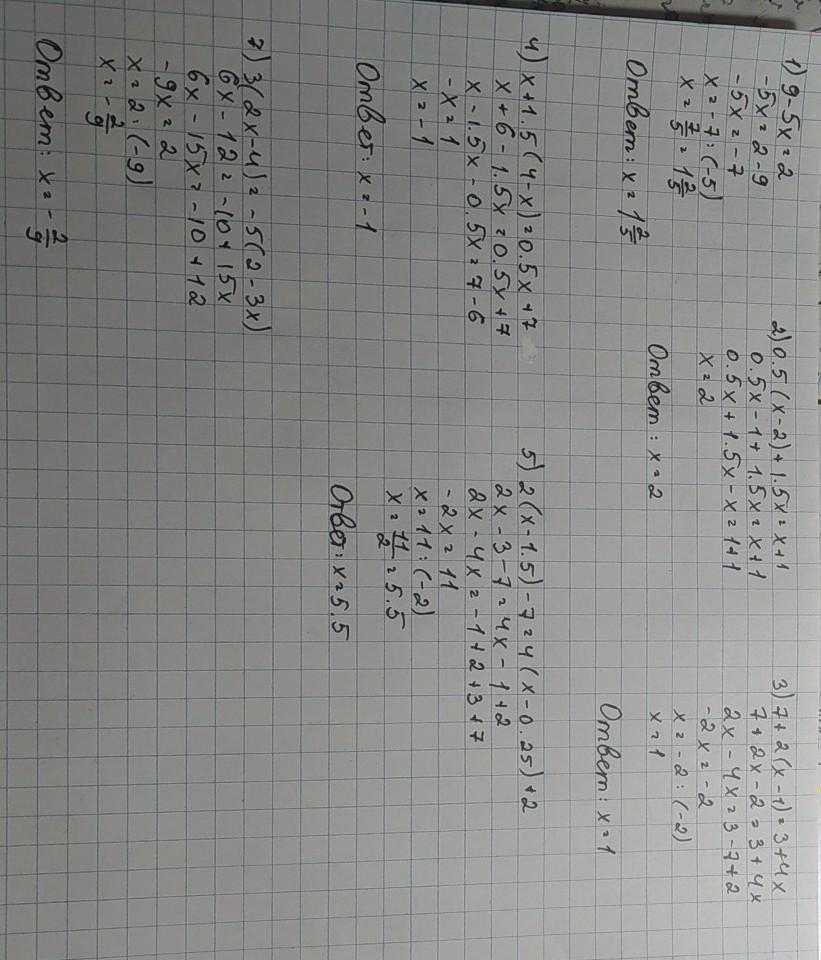 1) 9-5x=2
-5x=2-9
-5x=-7
x=-7:(-5)
x=7/5=1 2/5
Ответ: x=1 2/5
2) 0.5(x-2)+1.5x=x+1
0.5x-1+1.5x=x+1
0.5x+1.5x-x=1+1
x=2
Ответ: x=2
3) 7+2(x-1)=3+4x
7+2x-2=3+4x
2x-4x=3-7+2
-2x=-2
x=-2:(-2)
x=1
Ответ: x=1
4) x+1.5(4-x)=0.5x+7
x+6-1.5x=0.5x+7
x-1.5x-0.5x=7-6
-x=1
x=-1
Ответ: x=-1
5) 2(x-1.5)-7=4(x-0.25)+2
2x-3-7=4x-1+2
2x-4x=-1+2+3+7
-2x=11
x=11:(-2)
x=11/2=5.5
Ответ: x=5.5
7) 3(2x-4)=-5(2-3x)
6x-12=-10+15x
6x-15x=-10+12
-9x=2
x=2:(-9)
x=-2/9
Ответ: x=-2/9